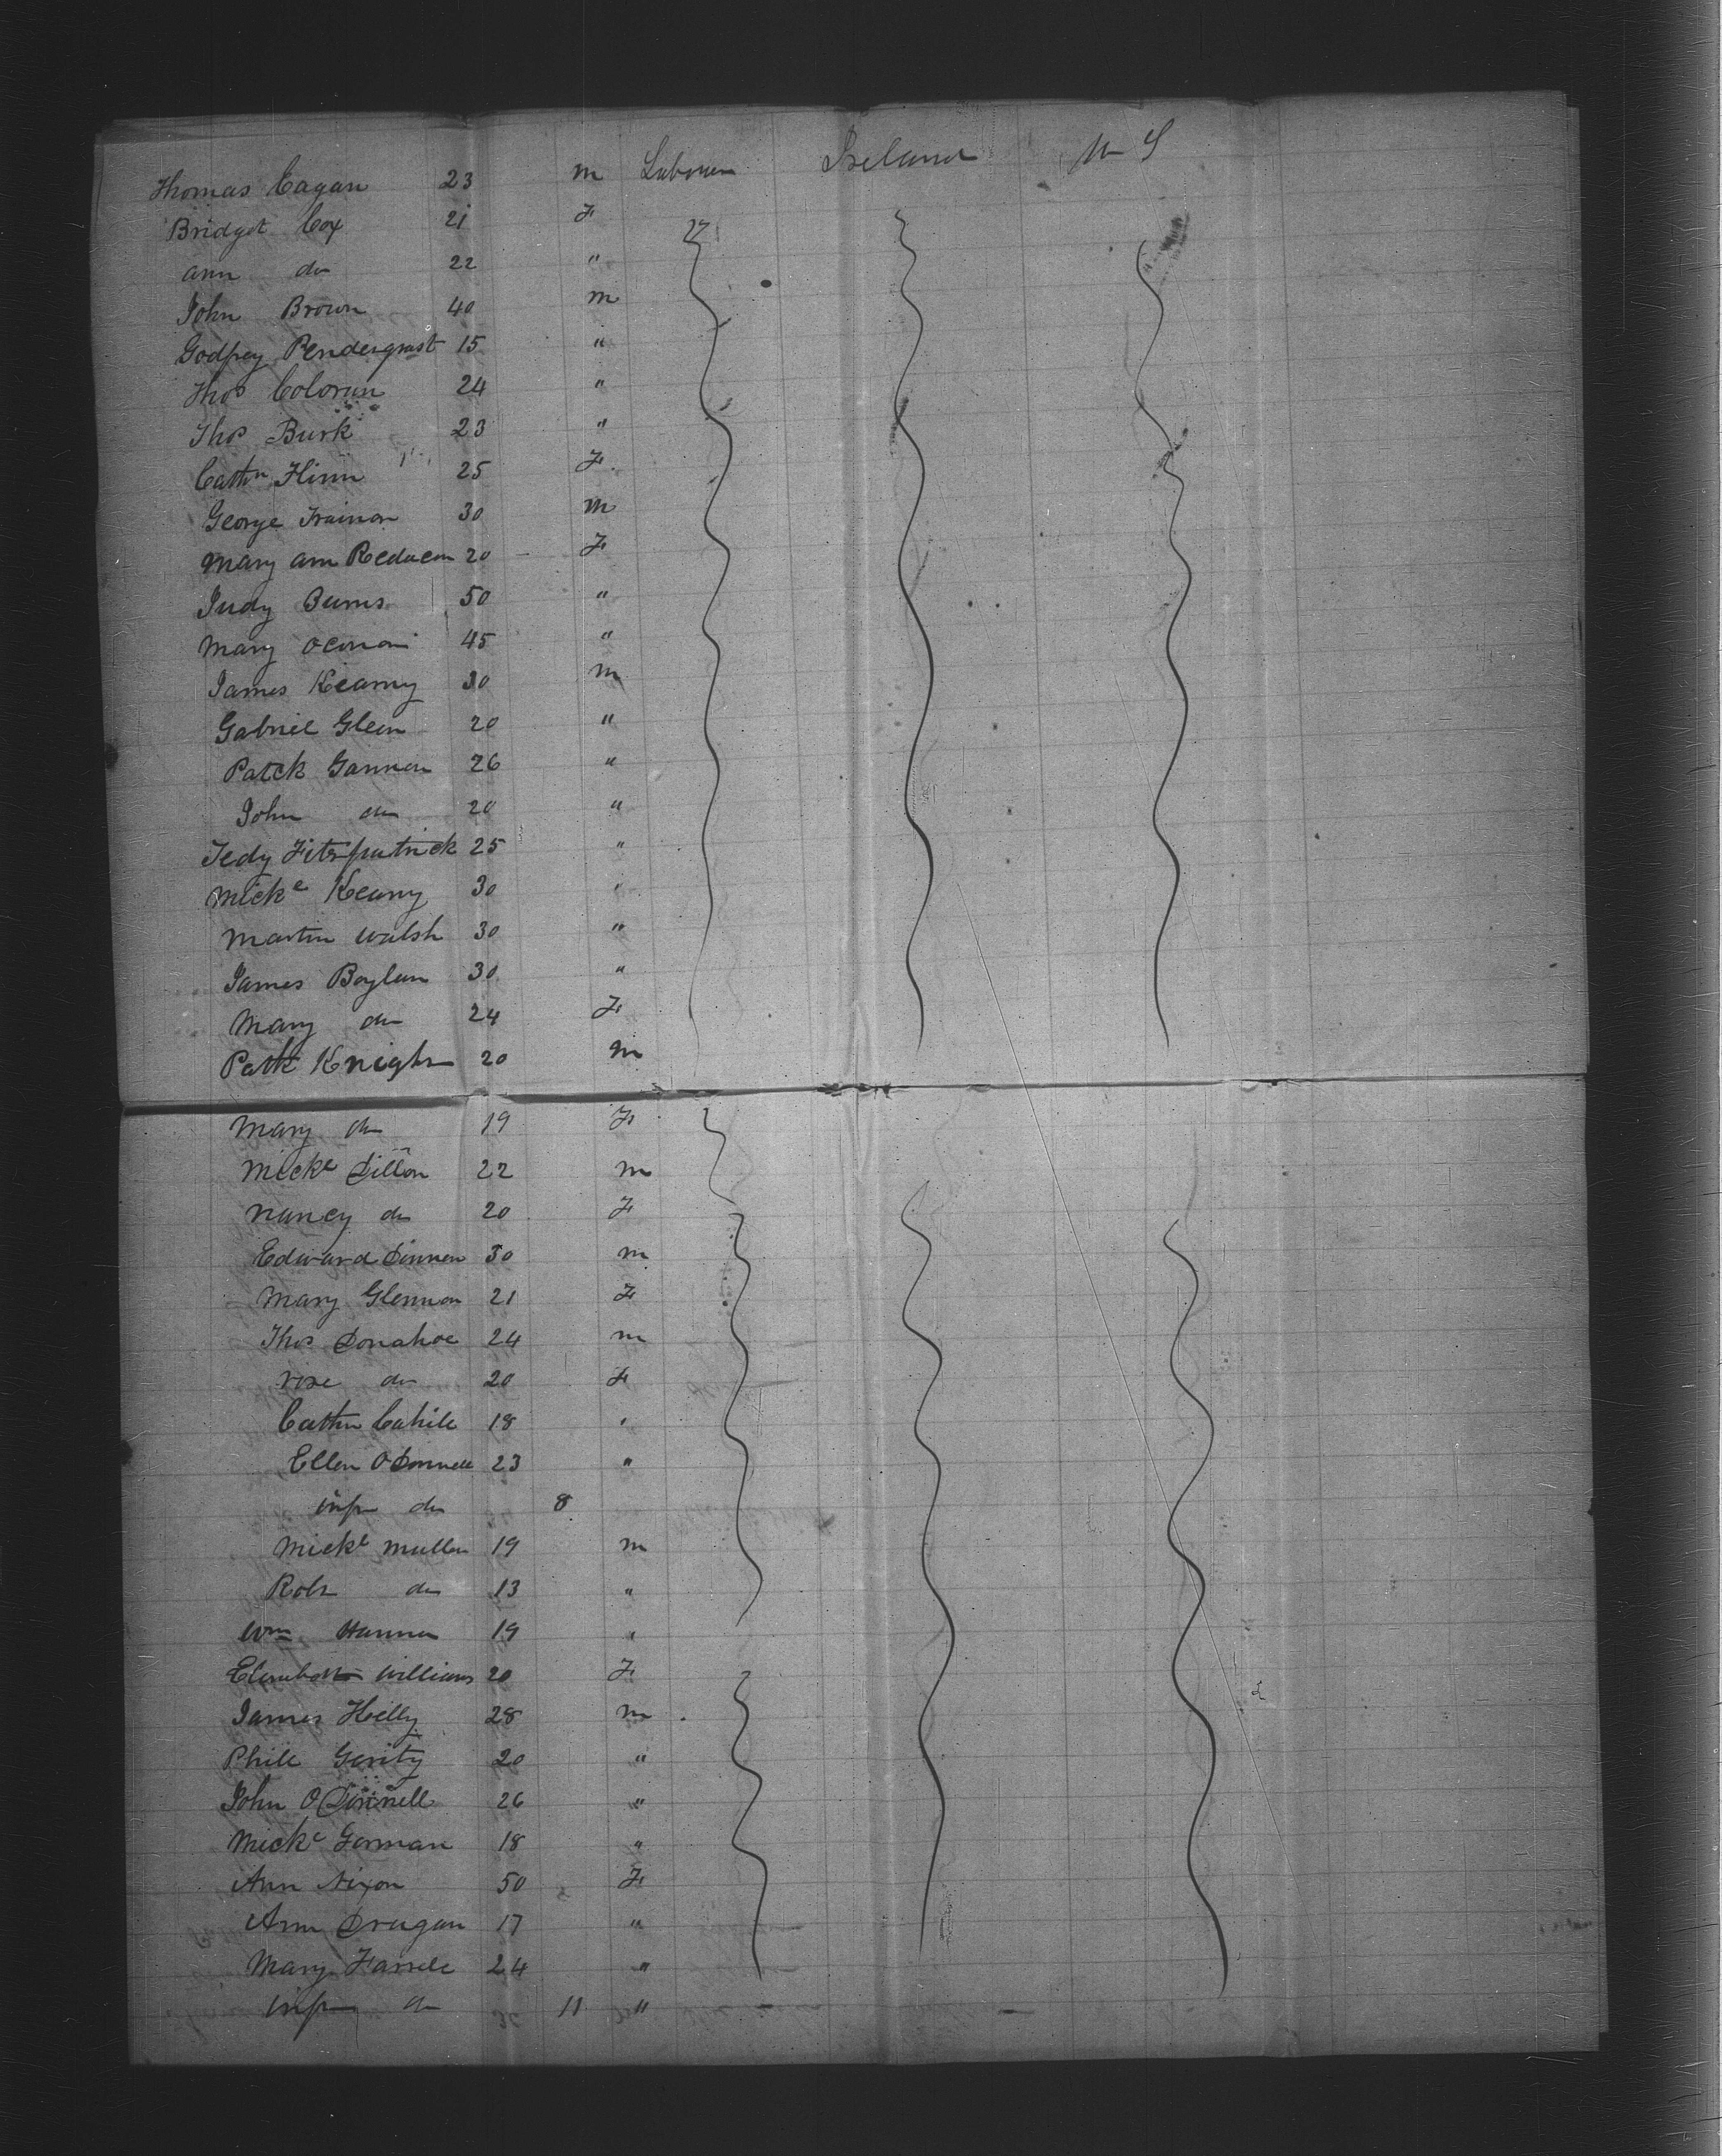 Thomas Eagan 23 m Labourer Ireland U S
Bridget Cox 21 F
ann do 22 "
John Brown 40 m
Godfrey Pendergrast 15 "
Thos Coloran 24 "
Thos Burk 23 "
Cathn Flinn 25 F
George Trainor 30 m
Mary ann 20 F
Judy Burns 50 "
Mary oConor 45 "
James Kearny 30 m
Gabriel Glenn 20 "
Patck Gannon 26 "
John do 20 "
Tedy Fitzpatrick 25 "
Micke Kearny 30 "
Martin Walsh 30 "
James Boylan 30 "
Mary do 24 F
Patk Knight 20 m
Mary do 19 F
Micke Dillon 22 m
Nancy do 20 F
Edward Dinnen 30 m
Mary Glennon 21 F
Thos Donahoe 24 m
rose do 20 F
Cathn Cahill 18 "
Ellen O Donnell 23 "
inft do 8
Micke Mullen 19 m
Robt do 13 "
Wm Hannon 19 "
Elizabeth Williams 20 F
James Kelly 28 m
Phill Gerity 20 "
John O Donnell 26 "
Micke Gorman 18 "
Ann Nixon 50 F
Ann Drugan 17 "
Mary Farrell 24 "
inft do 11 "